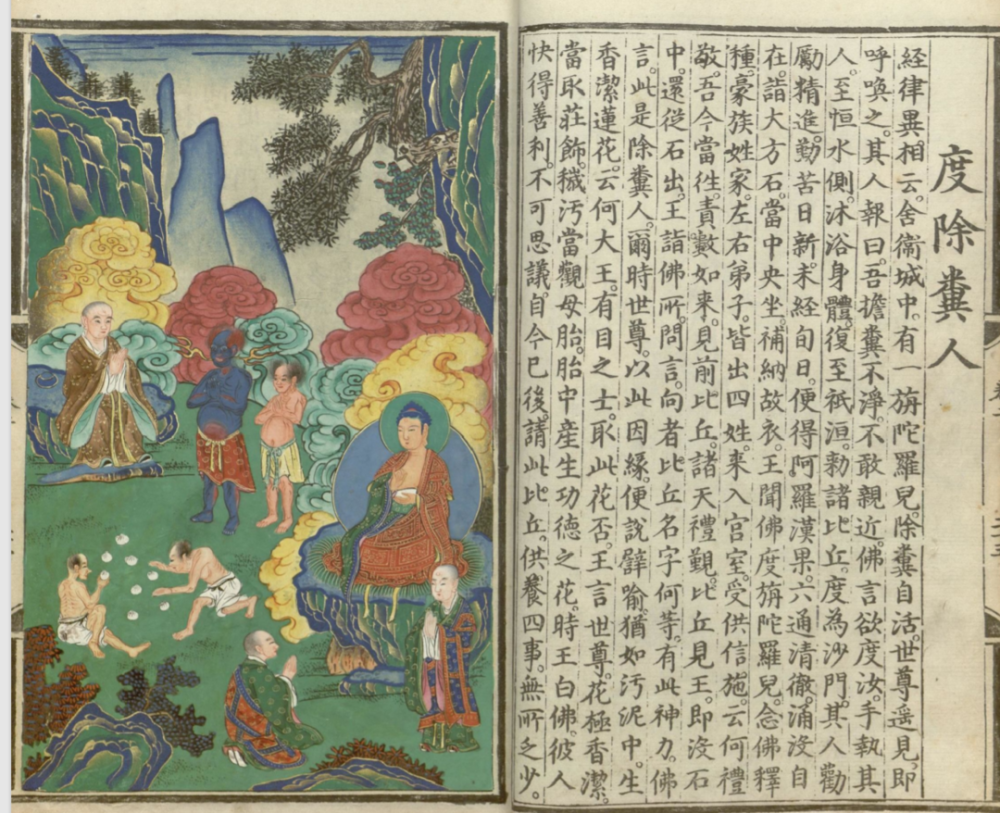 度除糞人
經律異相云。舍衞城中。有一旃陀羅兒。除糞自活。世尊遥見。即
呼喚之。其人報曰。吾擔糞不淨。不敢親近。佛言欲度汝。手執其
人。至恒水側。沐浴身體。復至祇洹。勑諸比丘。度為沙門。其人勸
勵精進。勤苦日新。未經旬日。便得阿羅漢果。六通清徹。涌沒自
在。詣大方石。當中央坐。補納故衣。王聞佛度旃陀羅兒。念佛釋
種。豪族姓家。左右弟子。皆出四姓。来入宫室。受供信施。云何禮
敬。吾今當徃。責數如来。見前比丘。諸天禮覲。比丘見王。即沒石
中。還從石出。王詣佛所。問言。向者比丘名字何等。有此神力。佛
言。此是除糞人。爾時世尊。以此因緣。便說譬喻。猶如污泥中。生
香潔蓮花。云何大王。有目之士。取此花否。王言世尊。花極香潔。
當取莊飾。穢污當觀母胎。胎中産生功德之花。時王白佛。彼人
快得善利。不可思議。自今已後。請此比丘。供養四事。無所乏少。